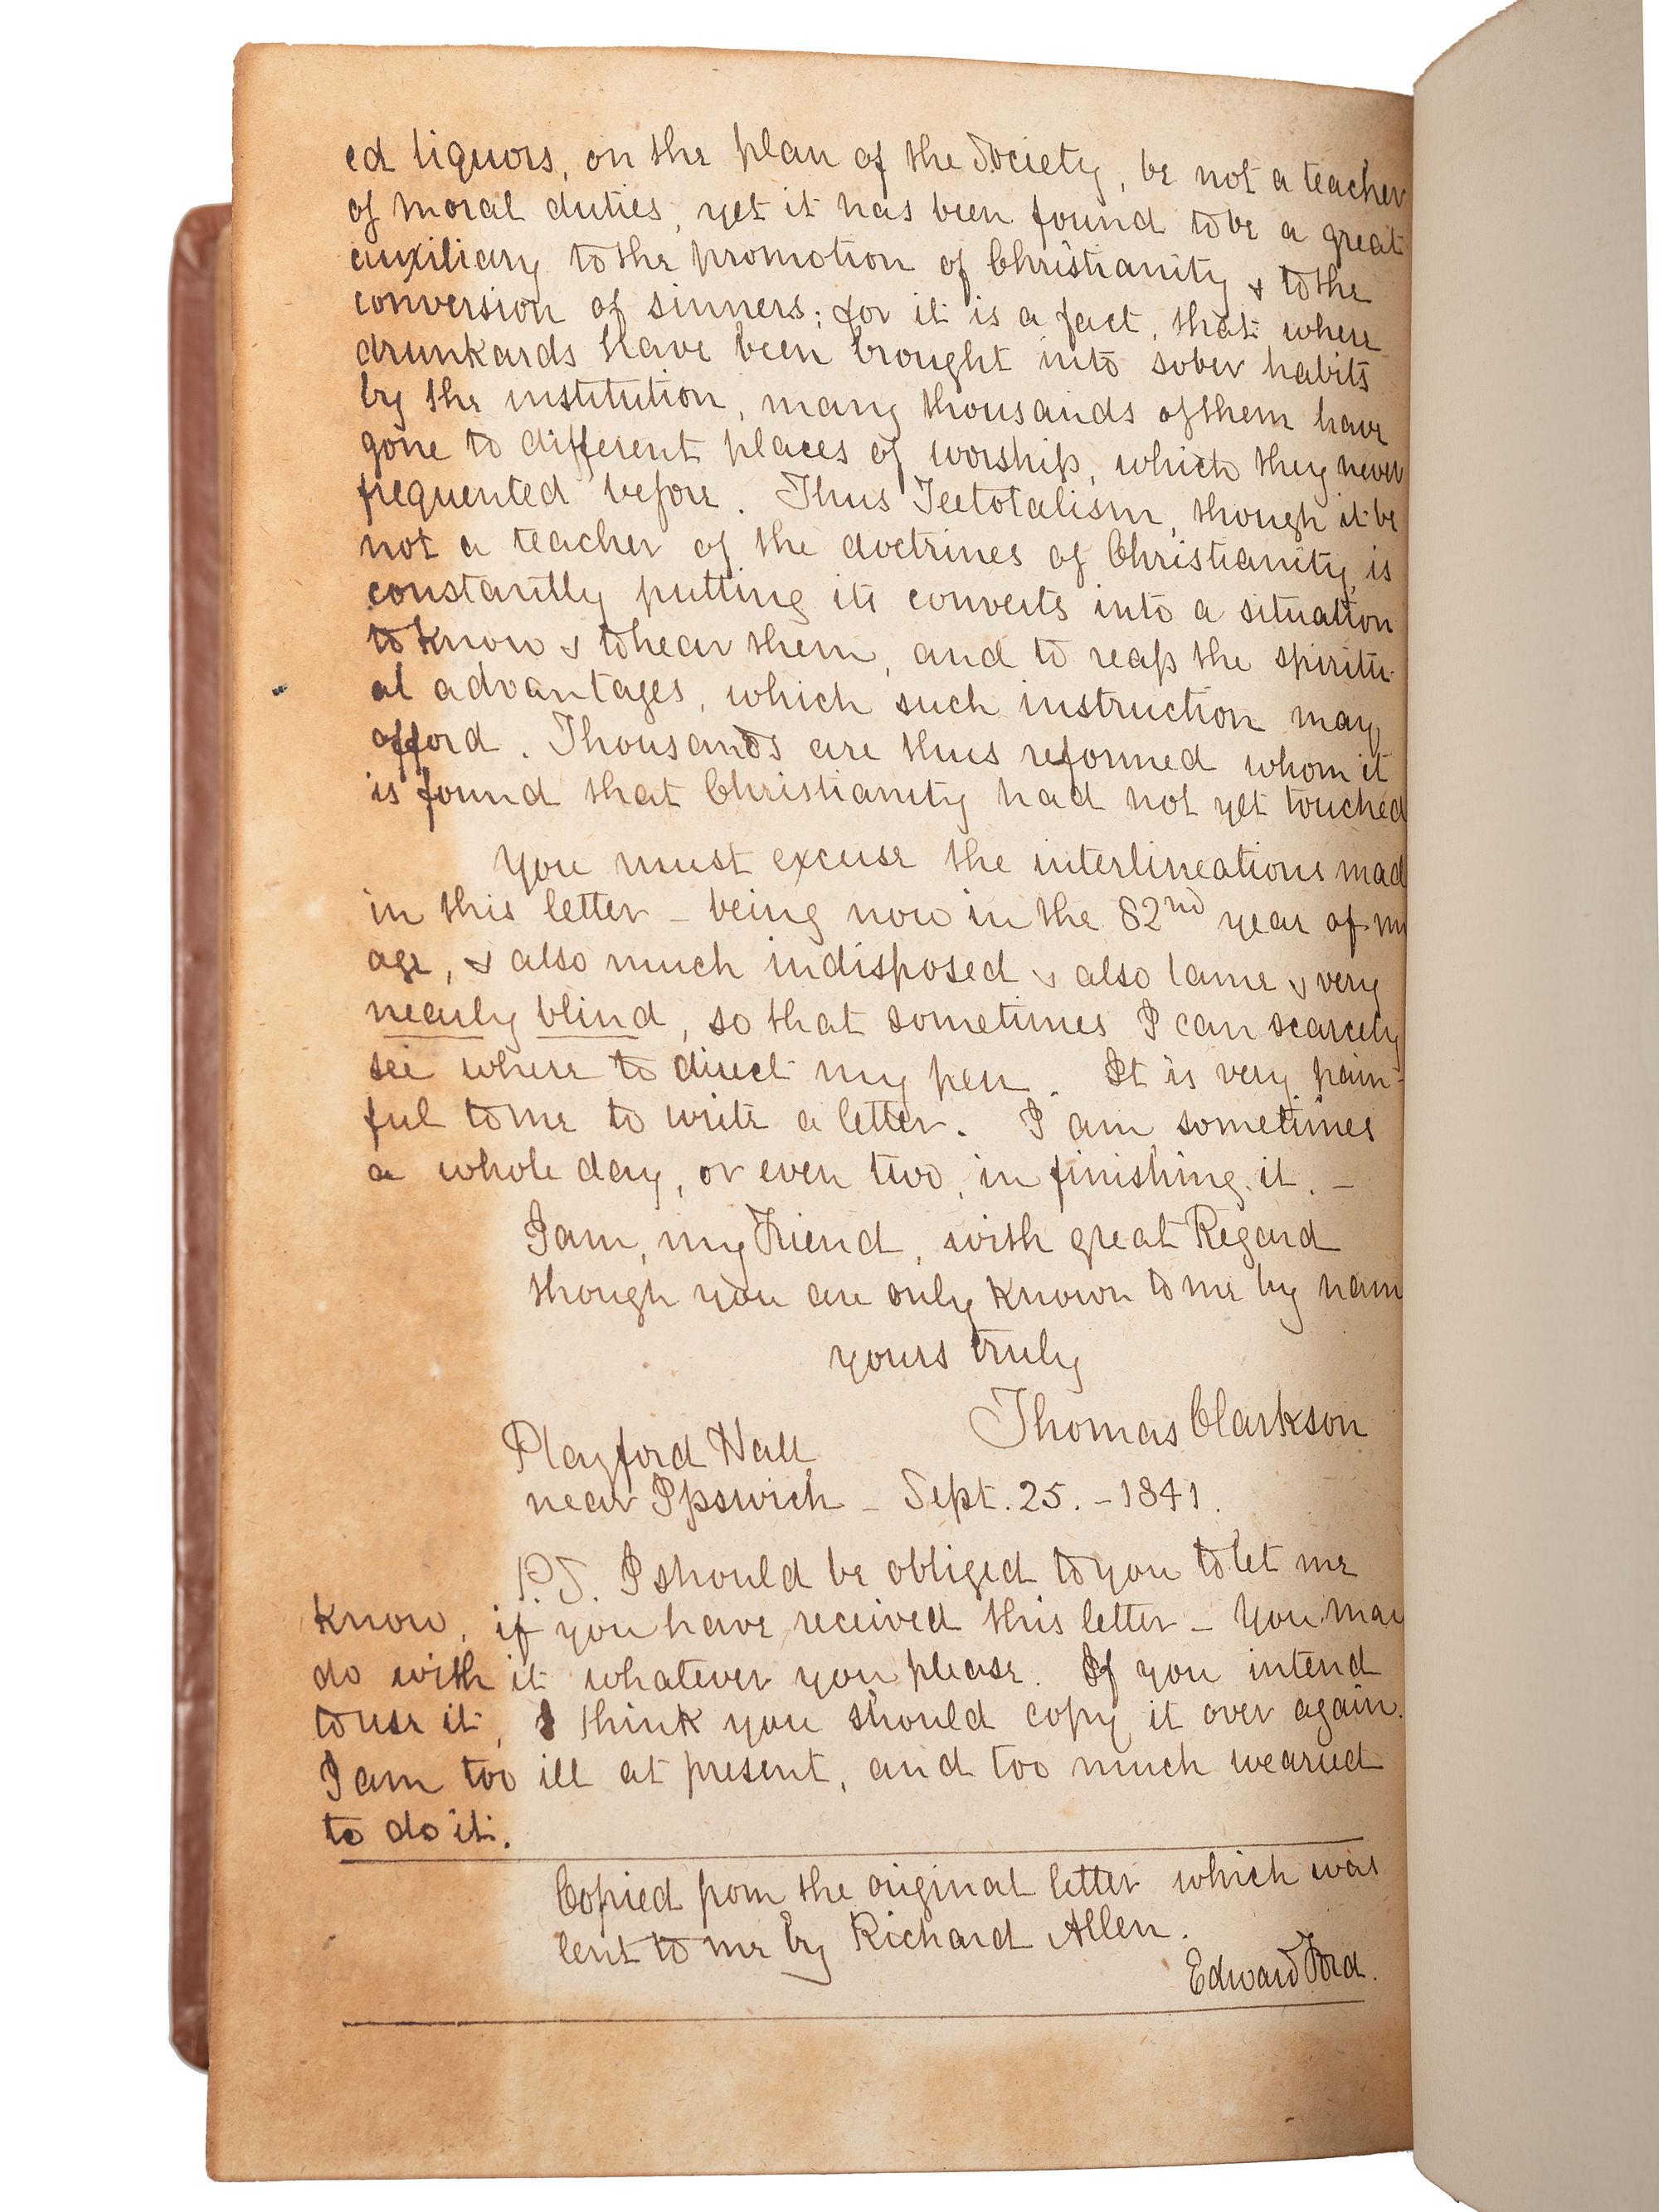 ed liquors, on the plan of the Society, be not a teacher
of moral duties, yet it has been found to be a great
auxiliary to the promotion of Christianity & to the
conversion of sinners; for it is a fact, that where
drunkards have been brought into sober habits
by the institution, many thousands of them have
gone to different places of worship, which they never
frequented before. Thus Teetotalism, though it be
not a teacher of the doctrines of Christianity, is
constantly putting its converts into a situation
to know & to hear them, and to reap the spiritu-
al advantages, which such instruction may
afford. Thousands are thus reformed whom it
is found that Christianity had not yet touched
You must excuse the interlineations mad
in this letter - being now in the 82nd year of m
age, & also much indisposed & also lame & very
nearly blind, so that sometimes I can scarcely
see where to direct my pen. It is very pain-
ful to me to write a letter. I am sometimes
a whole day, or even two, in finishing it. -
I am, my Friend, with great Regard
though you are only known to me by nam
yours truly
Thomas Clarkson
Playford Hall
near Ipswich - Sept. 25. - 1841.
P.S. I should be obliged to you to let me
know, if you have received this letter - You may
do with it whatever you please. If you intend
to use it, I think you should copy it over again.
I am too ill at present, and too much wearied
to do it.
Copied from the original letter which was
lent to me by Richard Allen.
Edward Ford.